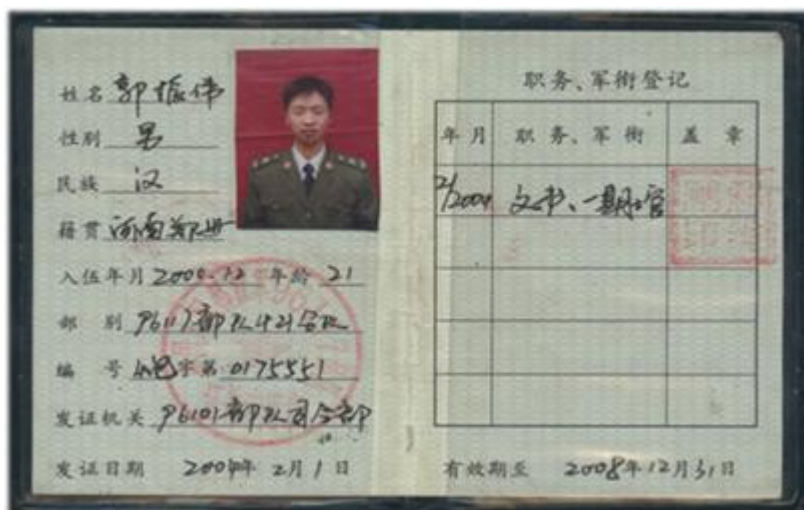 姓名 郭振伟
性别 男
民族 汉
籍贯 河南郑州
入伍年月 2000.12 年龄 21
部别 96117部队
编号 字第 0175551
发证机关 96101部队司令部
发证日期 2004年2月1日
职务、军衔登记
年月 职务、军衔 盖章
2/2004 文书、一期士官
有效期至 2008年12月31日